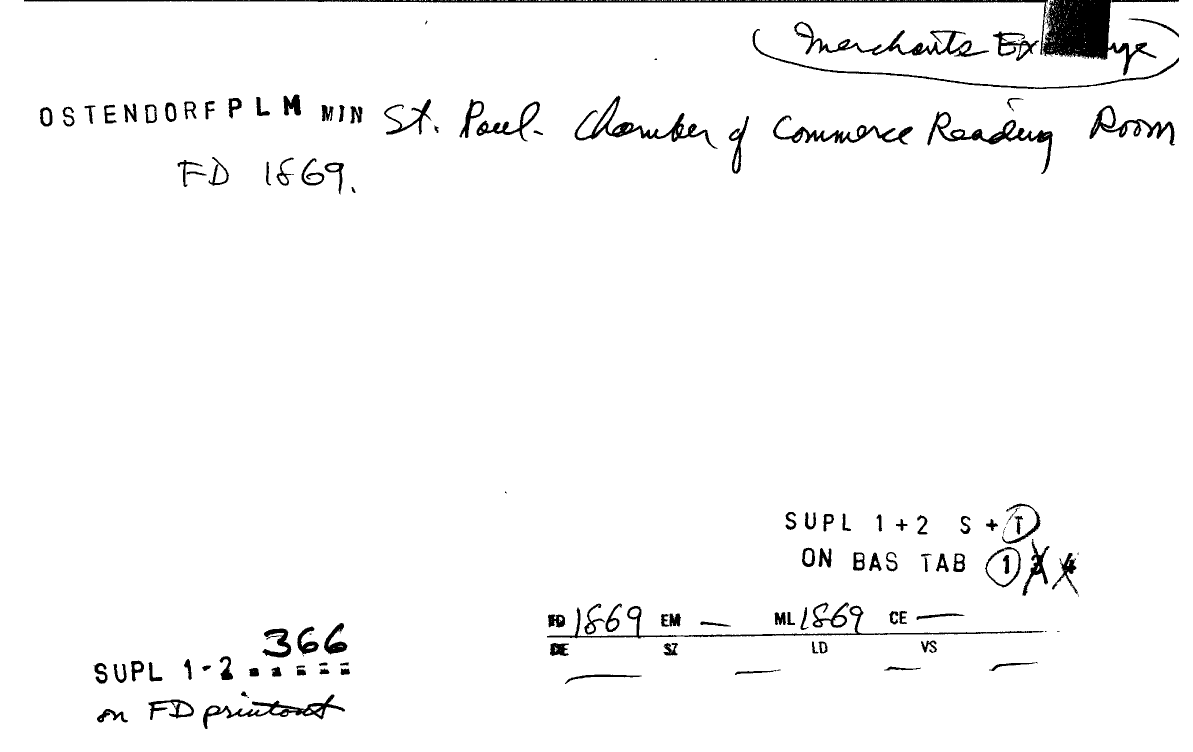 Merchants Ex ge
OSTENDORF PLM MIN St. Paul - Chamber of Commerce Reading Room
FD 1869.
SUPL 1+2 S+T
ON BAS TAB 1 3 4
FD 1869 EM — ML 1869 CE —
DE SZ LD VS
— — — —
366
SUPL 1-2
on FD printout